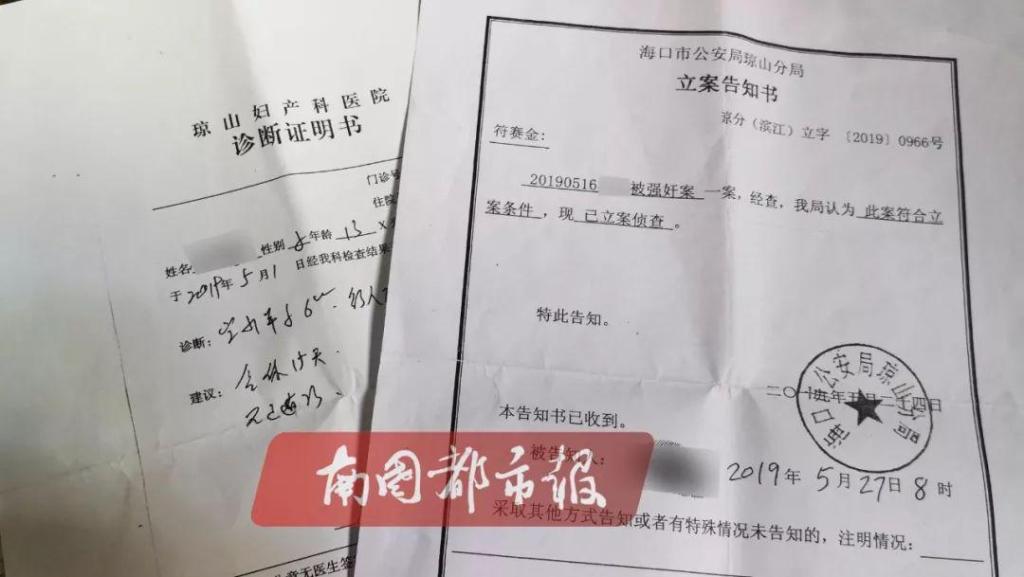 琼山妇产科医院
诊断证明书
门诊号
住院
姓名 性别 女 年龄 13
于 2019年5月1 日经我科检查结果
诊断:
建议: 全休15天
海口市公安局琼山分局
立案告知书
琼分（滨江）立字 〔2019〕0966号
符赛金:
20190516 被强奸案 一案，经查，我局认为 此案符合立
案条件，现 已立案侦查 。
特此告知。
海口市公安局琼山分局
二〇一九年五月二十四日
本告知书已收到。
被告知人:
2019年 5月27日8时
采取其他方式告知或者有特殊情况未告知的，注明情况:
南国都市报